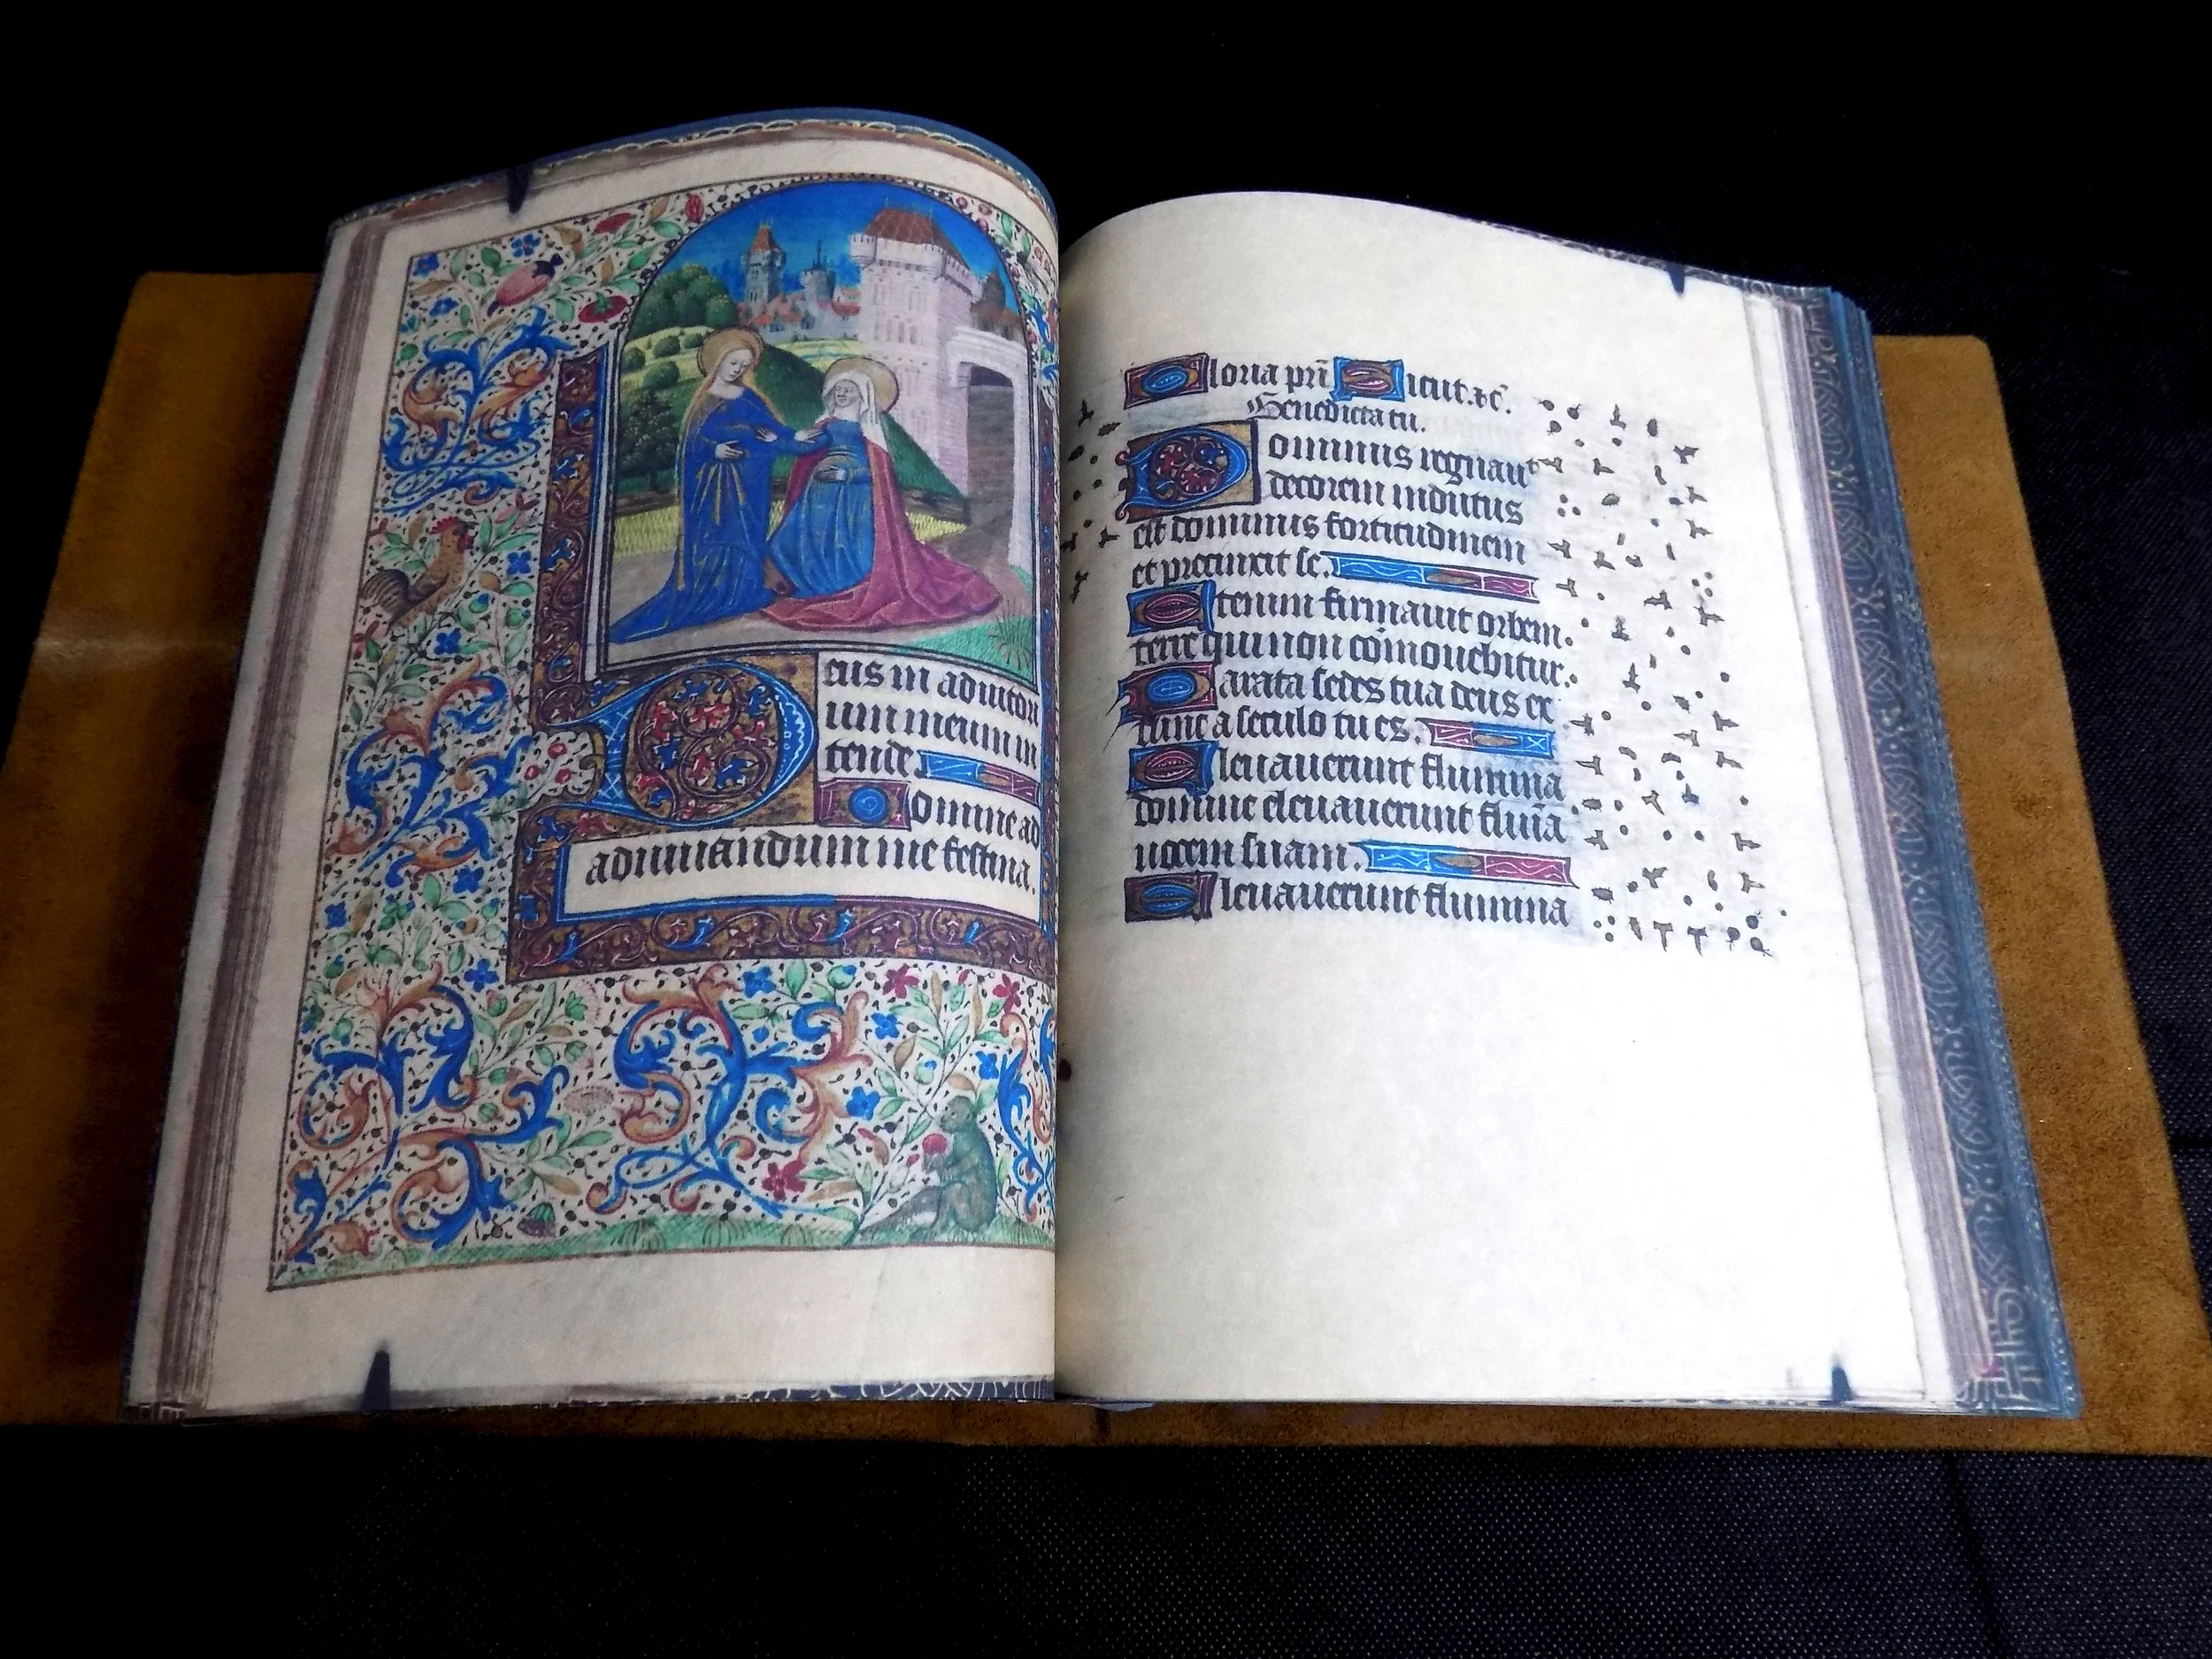 Deus in adiutori
um meum in
tende.
Domine ad
adiuuandum me festina.
Gloria pri Sicut. &c.
Benedicta tu.
Dominus regnauit
decorem indutus
est dominus fortitudinem
et precinxit se.
Etenim firmauit orbem.
terre qui non comouebitur.
Parata sedes tua deus ex
tunc a seculo tu es.
Eleuauerunt flumina
domine eleuauerunt fluia
uocem suam.
Eleuauerunt flumina